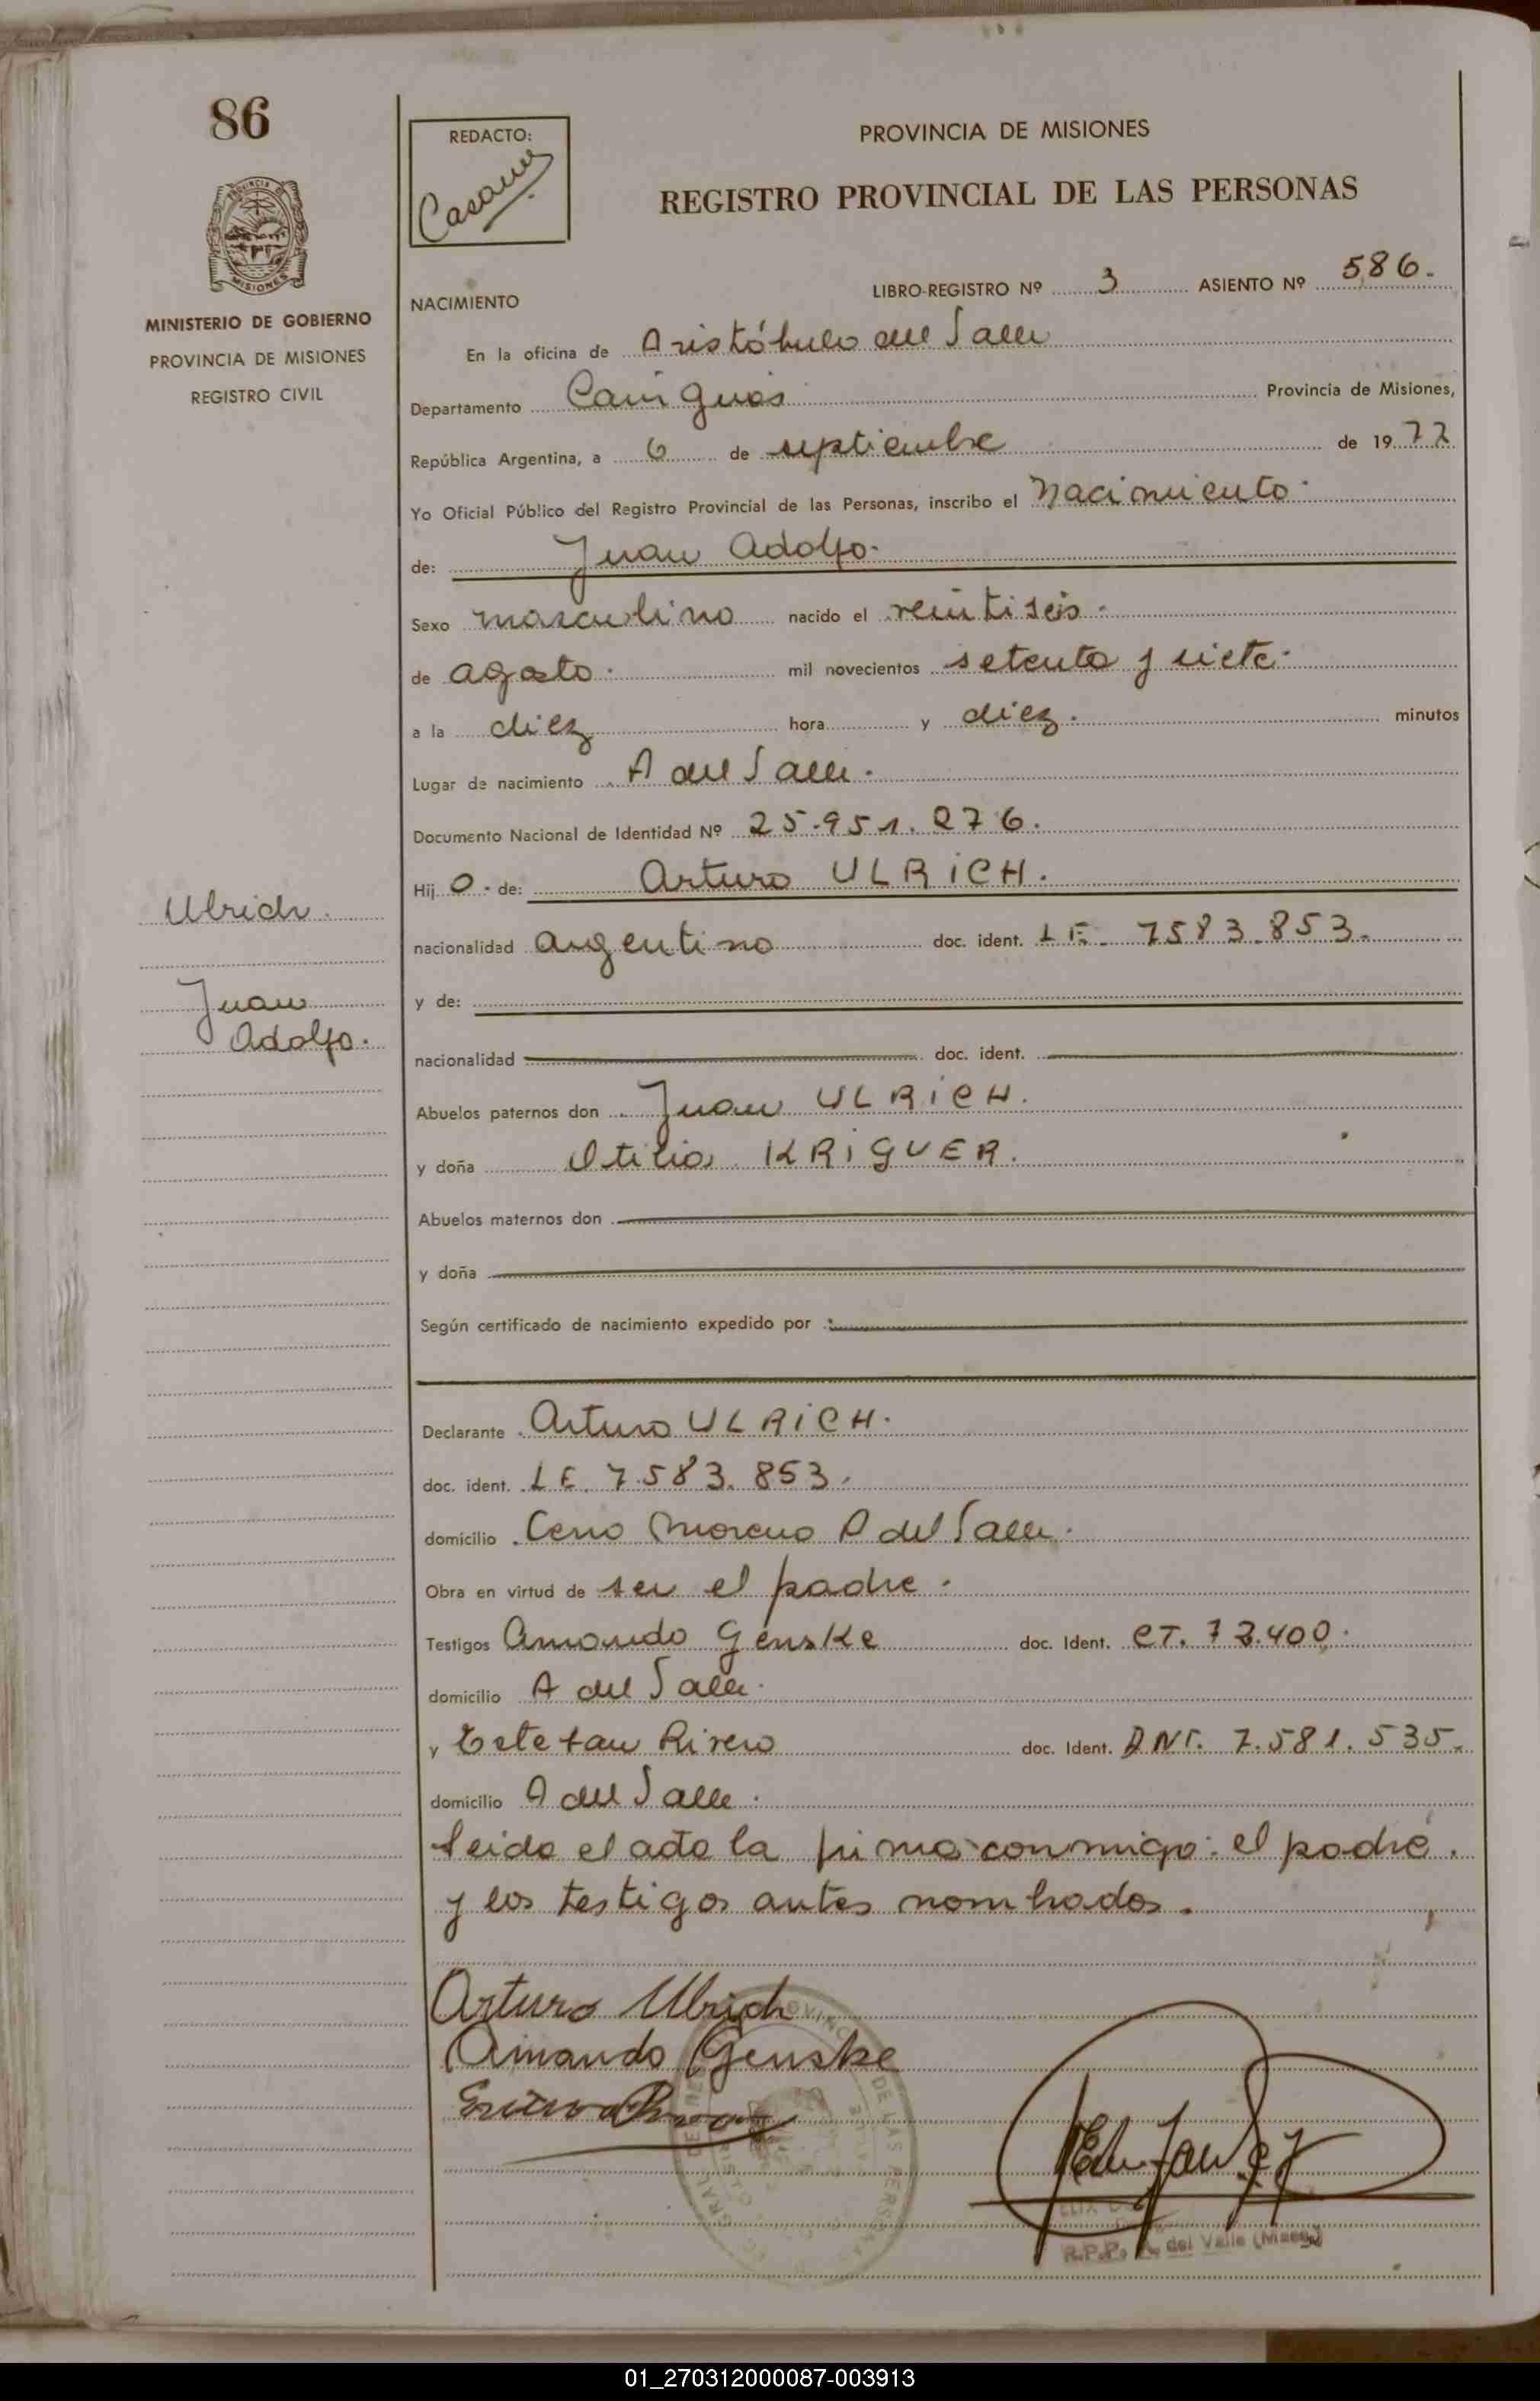 86
PROVINCIA DE MISIONES
MINISTERIO DE GOBIERNO
PROVINCIA DE MISIONES
REGISTRO CIVIL
REDACTO:
PROVINCIA DE MISIONES
REGISTRO PROVINCIAL DE LAS PERSONAS
LIBRO-REGISTRO Nº 3 ASIENTO Nº 586.
NACIMIENTO
En la oficina de Aristóbulo del Valle
Departamento Cainguás Provincia de Misiones,
República Argentina, a 6 de septiembre de 1977
Yo Oficial Público del Registro Provincial de las Personas, inscribo el Nacimiento
de: Juan Adolfo.
Sexo masculino nacido el veintiseis
de agosto. mil novecientos setenta y siete.
a la diez hora y diez. minutos
Lugar de nacimiento A del Valle.
Documento Nacional de Identidad Nº 25.951.276.
Hij o. de: Arturo ULRICH.
nacionalidad argentino doc. ident. LE. 7583.853.
y de:
nacionalidad doc. ident.
Abuelos paternos don Juan ULRICH.
y doña Otilia KRIGUER.
Abuelos maternos don
y doña
Según certificado de nacimiento expedido por
Ulrich.
Juan
Adolfo.
Declarante Arturo ULRICH.
doc. ident. LE. 7.583.853.
domicilio Cerro Moreno A del Valle.
Obra en virtud de ser el padre.
Testigos Amando Génske doc. Ident. CT. 73.400.
domicilio A del Valle.
y Esteban Rivero doc. Ident. DNI. 7.581.535.
domicilio A del Valle.
Leida el acta la firma conmigo: el padre.
y los testigos antes nombrados.
Arturo Ulrich
Amando Genske
R.P.P. A. del Valle (Mnes.)
01_270312000087-003913